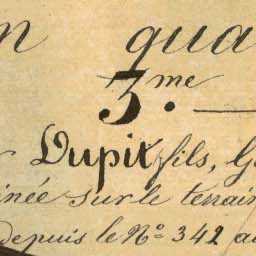 n qua
3.me
Dupit fils, G
inée sur le terrain
depuis le No 342 au